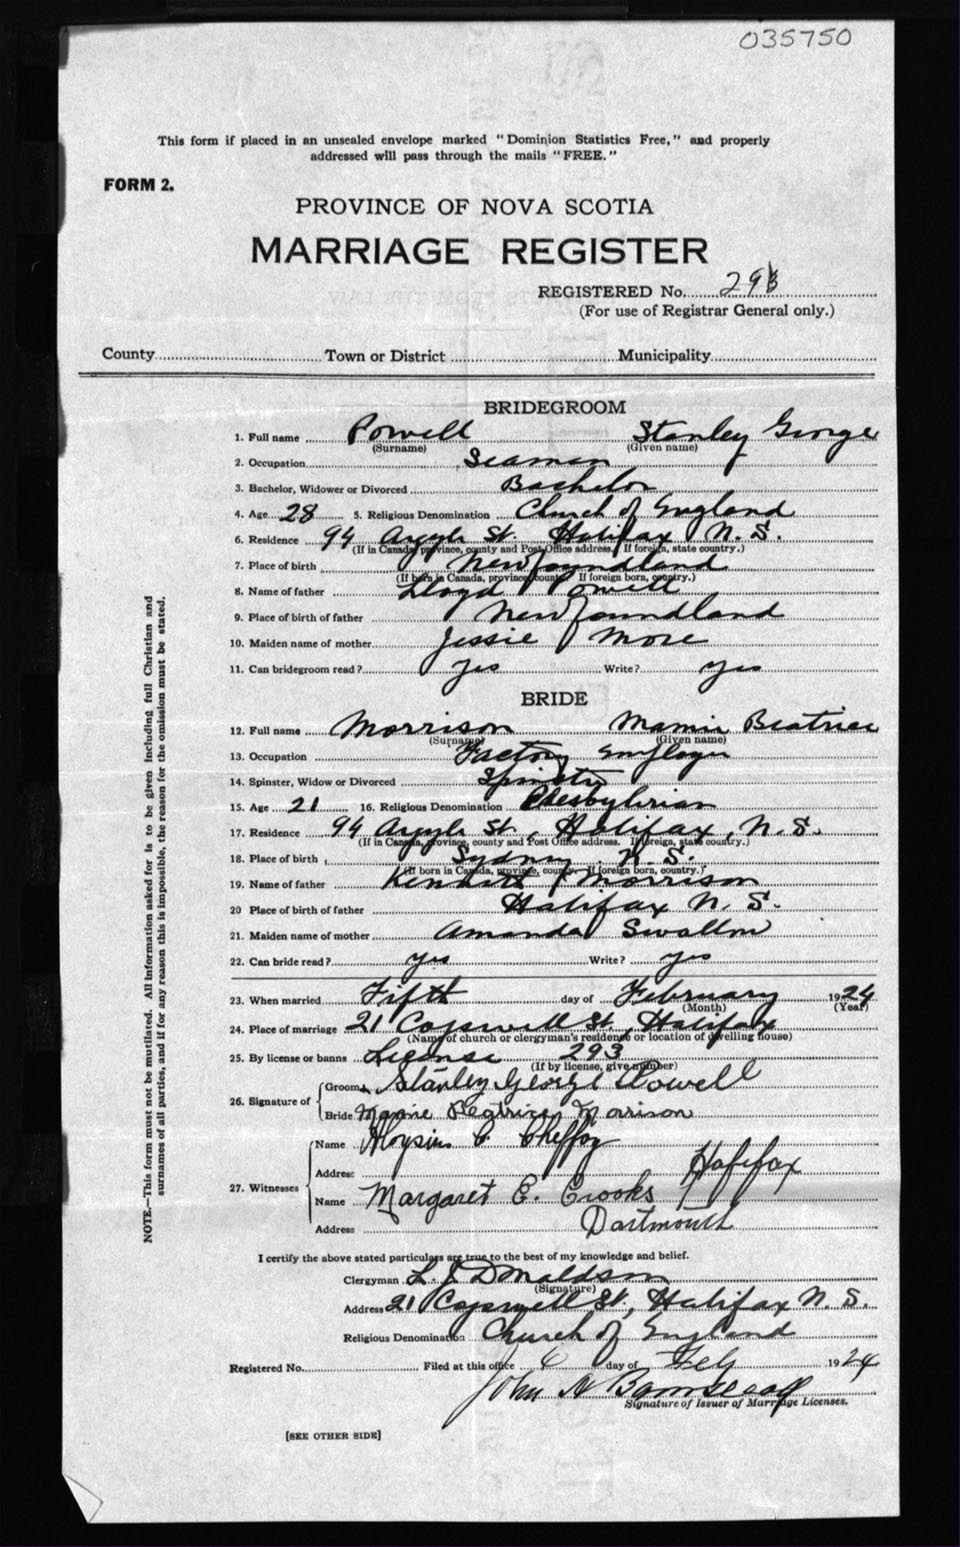 035750
This form if placed in an unsealed envelope marked "Dominion Statistics Free," and properly
addressed will pass through the mails "FREE."
FORM 2.
PROVINCE OF NOVA SCOTIA
MARRIAGE REGISTER
REGISTERED No. 293
(For use of Registrar General only.)
County Town or District Municipality
BRIDEGROOM
1. Full name Powell Stanley George
(Surname) (Given name)
2. Occupation Seaman
3. Bachelor, Widower or Divorced Bachelor
4. Age 28 5. Religious Denomination Church of England
6. Residence 94 Argyle St. Halifax N. S.
(If in Canada, province, county and Post Office address. If foreign, state country.)
7. Place of birth Newfoundland
(If born in Canada, province, county. If foreign born, country.)
8. Name of father Lloyd Powell
9. Place of birth of father Newfoundland
10. Maiden name of mother Jessie More
11. Can bridegroom read? Yes Write? Yes
BRIDE
12. Full name Morrison Mamie Beatrice
(Surname) (Given name)
13. Occupation Factory Employee
14. Spinster, Widow or Divorced Spinster
15. Age 21 16. Religious Denomination Presbyterian
17. Residence 94 Argyle St., Halifax, N. S.
(If in Canada, province, county and Post Office address. If foreign, state country.)
18. Place of birth Sydney N. S.
(If born in Canada, province, county. If foreign born, country.)
19. Name of father Kenneth Morrison
20 Place of birth of father Halifax N. S.
21. Maiden name of mother Amanda Swallow
22. Can bride read? yes Write? yes
23. When married Fifth day of February 1924
(Month) (Year)
24. Place of marriage 21 Cogswell St., Halifax
(Name of church or clergyman's residence or location of dwelling house)
25. By license or banns License 293
(If by license, give number)
26. Signature of Groom Stanley George Powell
Bride Mamie Beatrice Morrison
27. Witnesses Name Aloysius
Address Halifax
Name Margaret E. Crooks
Address Dartmouth
I certify the above stated particulars are true to the best of my knowledge and belief.
Clergyman L. J. Donaldson
(Signature)
Address 21 Cogswell St., Halifax N. S.
Religious Denomination Church of England
Registered No. Filed at this office 6 day of Feb 1924
John A
Signature of Issuer of Marriage Licenses.
[SEE OTHER SIDE]
NOTE.—This form must not be mutilated. All information asked for is to be given including full Christian and
surnames of all parties, and if for any reason this is impossible, the reason for the omission must be stated.